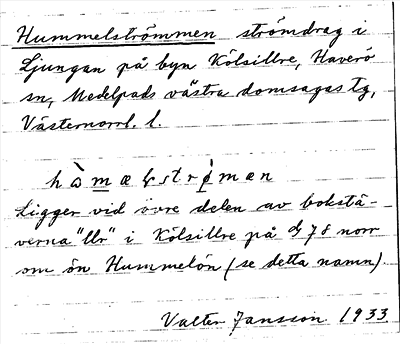 Hummelströmmen strömdrag i
Ljungan på byn Kölsillre, Haverö
sn, Medelpads västra domsagas tg,
Västernorrl. l.
hὼmælstrømæn
Ligger vid övre delen av bokstä-
verna "llr" i Kölsillre på 78 norr
om ön Hummelön (se detta namn).
Valter Jansson 1933